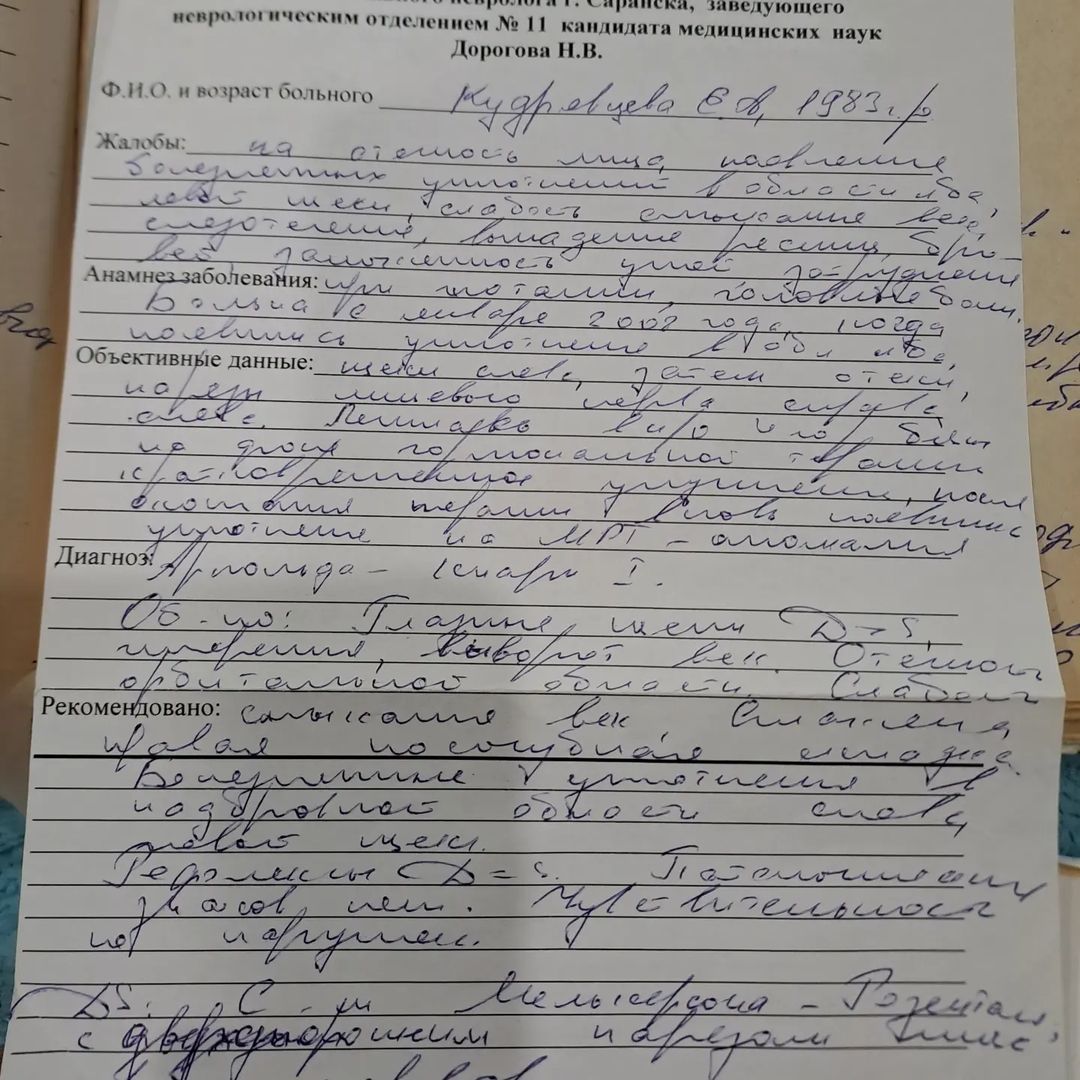 невролога г. Саранска, заведующего
неврологическим отделением № 11 кандидата медицинских наук
Дорогова Н.В.
Ф.И.О. и возраст больного Кудрявцева Е.А, 1983 г.р.
Жалобы: на отечность лица, появление
болезненных уплотнений в области лба,
левой щеки, слабость смыкание век,
слезотечение, выпадение ресниц, бро-
вей, затруднения
Анамнез заболевания: при глотании, головные боли.
Больна с января 2008 года, когда
появились уплотнение в обл лба,
Объективные данные: щеки слева, затем отеки,
парез лицевого нерва справа
слева. Лечилась
на фоне гормональной терапии
кратковременное улучшение, после
окончания терапии вновь появились
уплотнения на МРТ - аномалия
Диагноз: Арнольда - Киари I.
Об-но: Глазные щели D=S,
выворот век. Отечность
орбитальной области. Слабость
Рекомендовано: смыкания век Сглажена
правая носогубная складка.
Болезненные уплотнения в
надбровной области слева,
левой щеки.
Рефлексы D=S. Патологических
знаков нет. Чувствительность
не нарушен.
DS: С-м Мелькерсона - Розенталя
с двухсторонним парезом